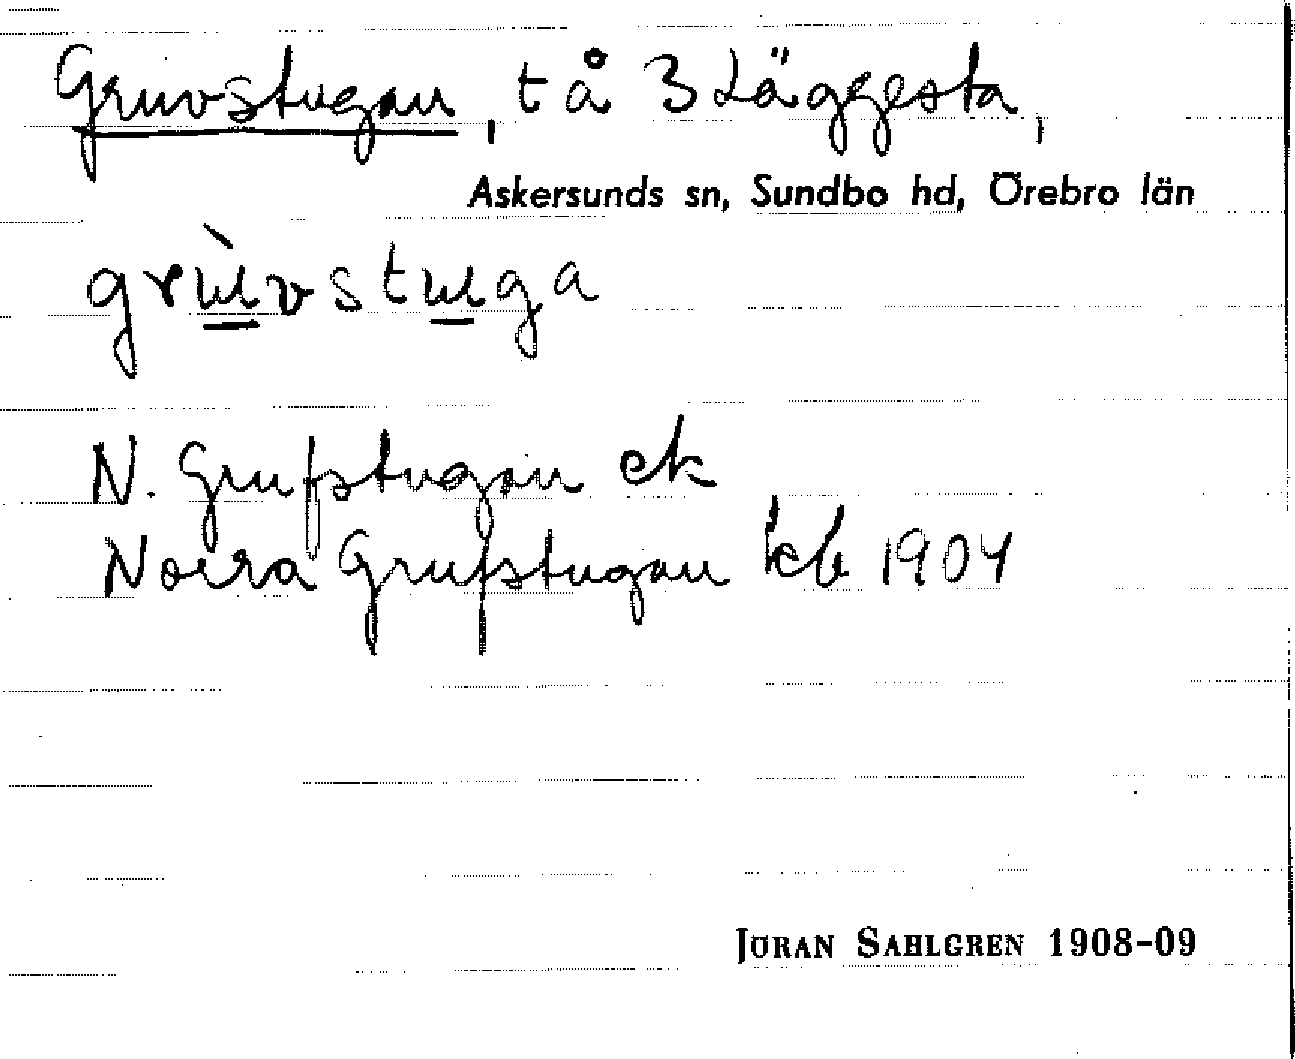 Gruvstugan, t å 3 Läggesta,
Askersunds sn, Sundbo hd, Örebro län
grùvstuga
N. Grufstugan ek
Norra Grufstugan kb 1904
JÖRAN SAHLGREN 1908-09